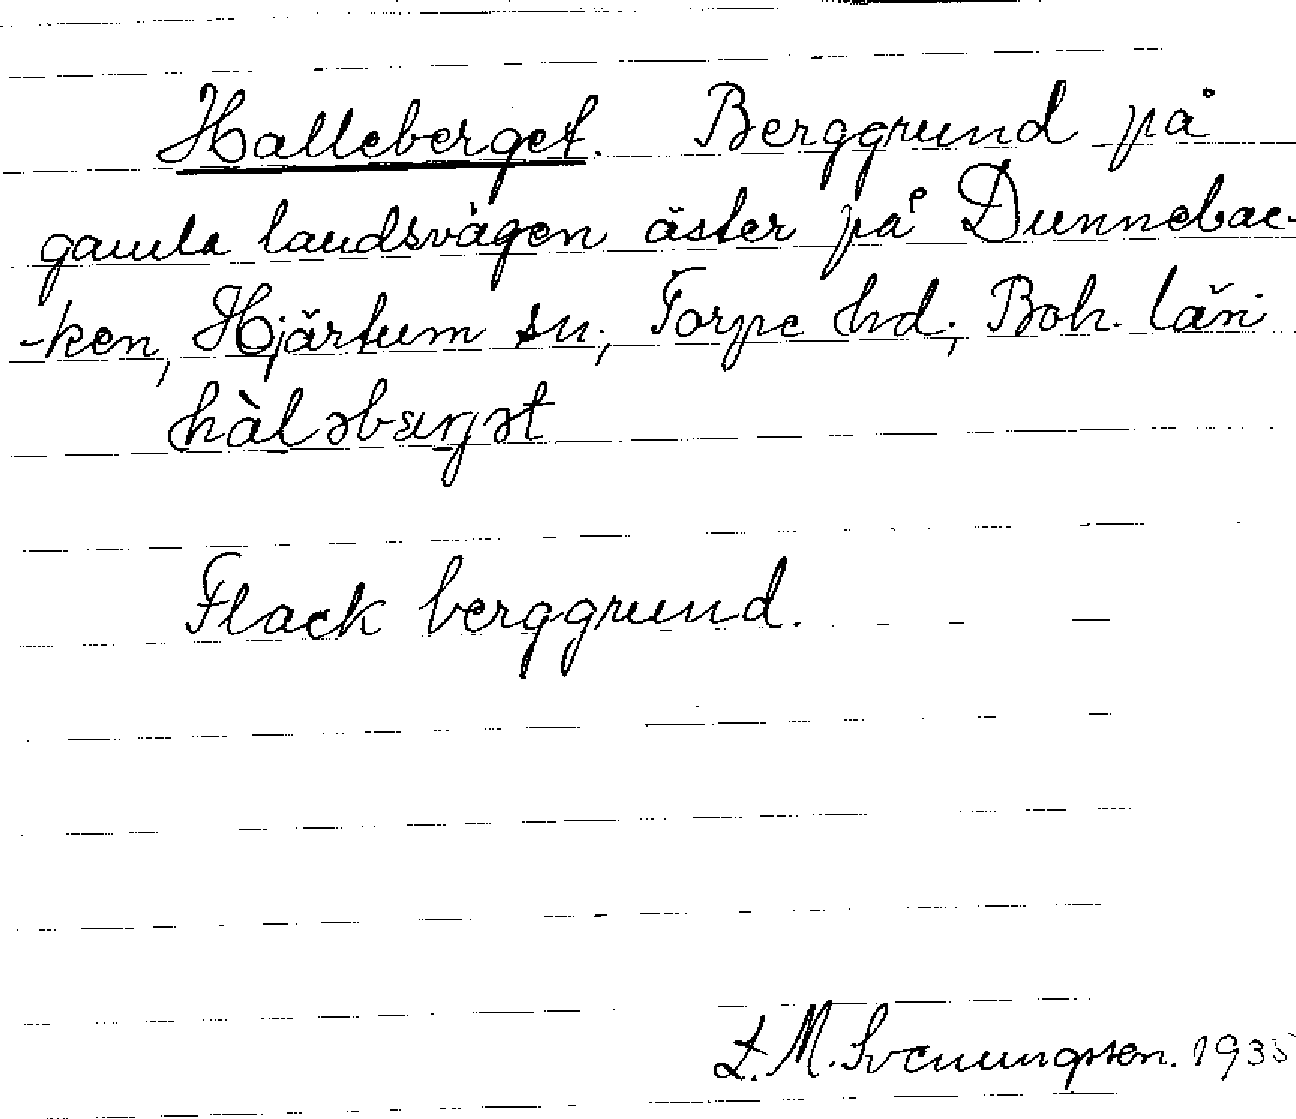 Halleberget. Berggrund på
gamla landsvägen äster på Dunnebac-
-ken, Hjärtum sn, Torpe hd, Boh. län
hàləbærjət
Flack berggrund.
L. M. Svenungsson. 1935